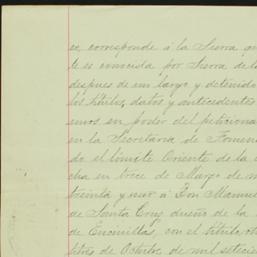 ce, corresponde á la Sierra que
te es conocida por Sierra de la
despues de un largo y detenido
los títulos, datos y antecedentes
en poder del peticiona
en la Secretaria de Fomen
do el límite Oriente de la
cha en trece de Marzo de m
treinta y nueve á Don Manue
de Santa Cruz dueño de la
de Encinillas, con el título
de Octubre, de mil setecie